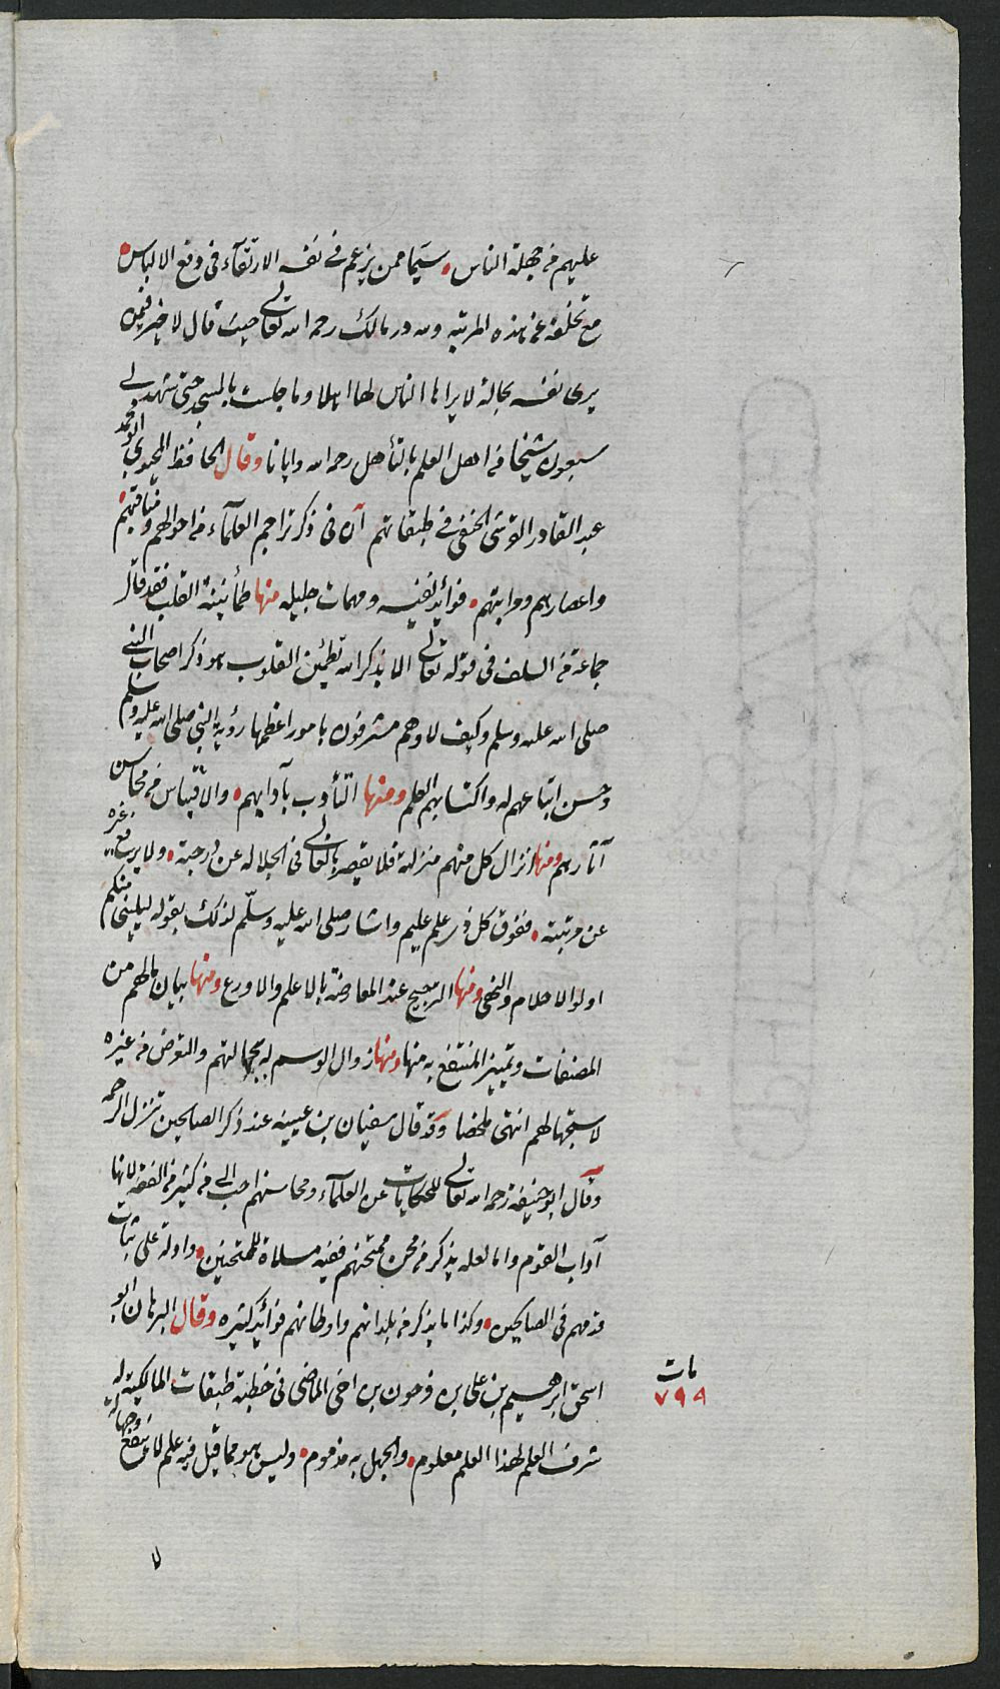 عليهم من جهلة الناس، سيما ممن يزعم في نفسه الارتقاء في دفع الالباس،
مع تخلفه عن هذه المرتبة ولله در مالك رحمه الله تعالى حيث قال لا خير فيمن
يرى نفسه بحالة لا يراها الناس لها اهلا وما جلست بالمسجد حتى شهد لي
سبعون شيخا من اهل العلم بالتأهل رحمه الله وايانا وقال الحافظ المحيوي ابو محمد
عبد القادر القرشي الحنفي في طبقاتهم ان في ذكر تراجم العلماء من احوالهم ومناقبهم،
واعصارهم ومراتبهم، فوائد نفيسه ومهمات جليله منها طمأنينة القلب فقد قال
جماعة من السلف في قوله تعالى الا بذكر الله تطمئن القلوب هو ذكر اصحاب النبي
صلى الله عليه وسلم وكيف لا وهم مشرفون بامور اعظمها رؤية النبي صلى الله عليه وسلم
وحسن اتباعهم له واكتسابهم العلم ومنها التأدب بآدابهم، والاقتباس من محاسن
آثارهم ومنها انزال كل منهم منزلة فلا يقصر بالعالي في الجلاله عن درجته، ولا يرفع غيره
عن مرتبته، ففوق كل ذي علم عليم واشار صلى الله عليه وسلم لذلك بقوله ليليني منكم
اولو الاحلام والنهى ومنها الترجيح عند المعارضة بالاعلم والاورع ومنها بيان مالهم من
المصنفات وتمييز المنتفع به منها ومنها زوال الوسم له بجهالتهم والتعوض من غيره
لاستجهالهم انتهى ملخصا وقد قال سفيان بن عيينه عند ذكر الصالحين تنزل الرحمه
وقال ابو حنيفة رحمه الله تعالى للحكايات عن العلماء ومحاسنهم احب الي من كثير من الفقه لانها
آداب القوم وما لعله يذكر من محن ممتحنهم ففيه مسلاة للممتحنين، وادلة على ثبات
قدمهم في الصالحين، وكذا ما يذكر من بلدانهم واوطانهم فوائد كثيره وقال البرهان ابو
اسحق ابرهيم بن علي بن فرحون بن اخي الماضي في خطبة طبقات المالكية له
مات
٧٩٩
شرف العلم لهذا العلم معلوم، والجهل به مذموم، وليس هو مما قيل فيه علم لا ينفع وجهالة
لا